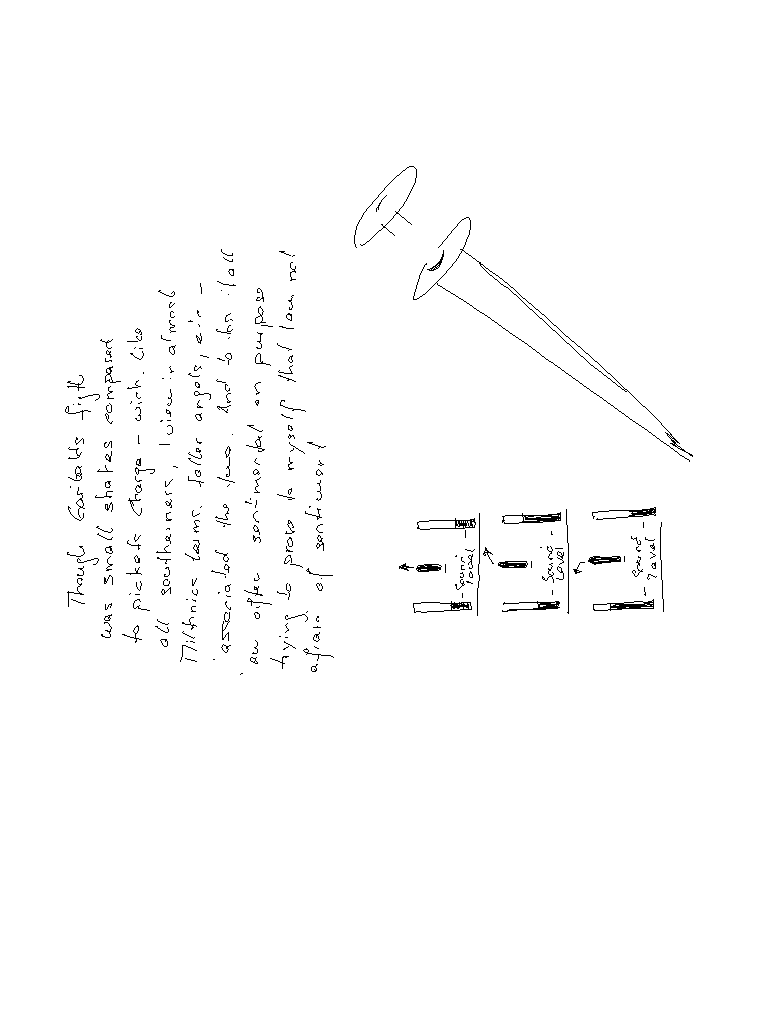 Though Garibaldis figth
was small shakes compared
to pickets Charge - wich. Like
all southerness, I view in almost
Miltonics terms. faller angels, etc -
associated the two. And to him I all
am often sentimental on purpose
trying to prove to myself that I am not
afraid of sentiment
- Sound level -
- Sound Level -
- Sound Level -